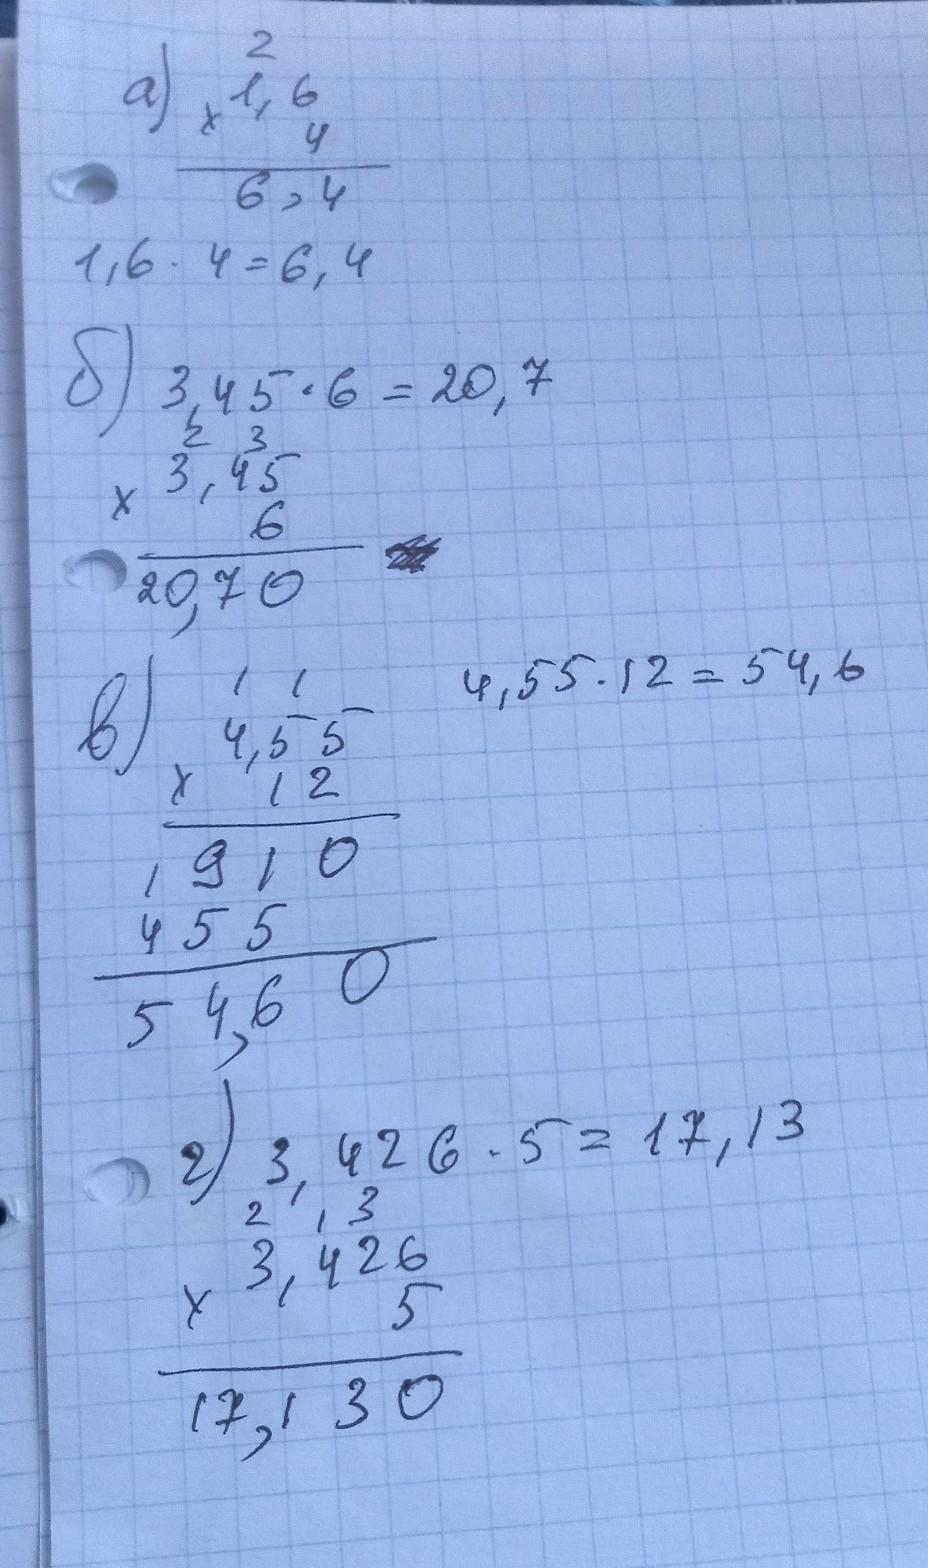 2
а) 1,6
× 4
6,4
1,6 · 4 = 6,4
б) 3,45 · 6 = 20,7
2 3
3,45
× 6
20,70
в) 1 1
4,55 · 12 = 54,6
4,55
× 12
1910
455
54,60
г) 3,426 · 5 = 17,13
2 1 3
3,426
× 5
17,130